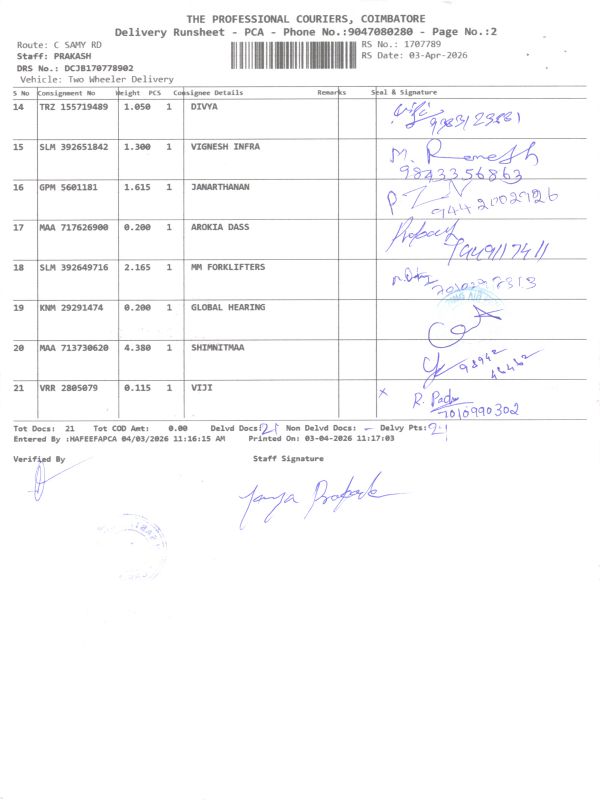 THE PROFESSIONAL COURIERS, COIMBATORE
Delivery Runsheet - PCA - Phone No.:9047080280 - Page No.:2
Route: C SAMY RD
RS No.: 1707789
Staff: PRAKASH
RS Date: 03-Apr-2026
DRS No.: DCJB170778902
Vehicle: Two Wheeler Delivery
S No Consignment No Weight PCS Consignee Details Remarks Seal & Signature
14 TRZ 155719489 1.050 1 DIVYA
15 SLM 392651842 1.300 1 VIGNESH INFRA M. Ramesh
9843356863
16 GPM 5601181 1.615 1 JANARTHANAN
9442002926
17 MAA 717626900 0.200 1 AROKIA DASS
18 SLM 392649716 2.165 1 MM FORKLIFTERS
19 KNM 29291474 0.200 1 GLOBAL HEARING
20 MAA 713730620 4.380 1 SHIMNITMAA
21 VRR 2805079 0.115 1 VIJI x R. Padma
7010990302
Tot Docs: 21 Tot COD Amt: 0.00 Delvd Docs: 21 Non Delvd Docs: - Delvy Pts: 21
Entered By :HAFEEFAPCA 04/03/2026 11:16:15 AM Printed On: 03-04-2026 11:17:03
Verified By Staff Signature